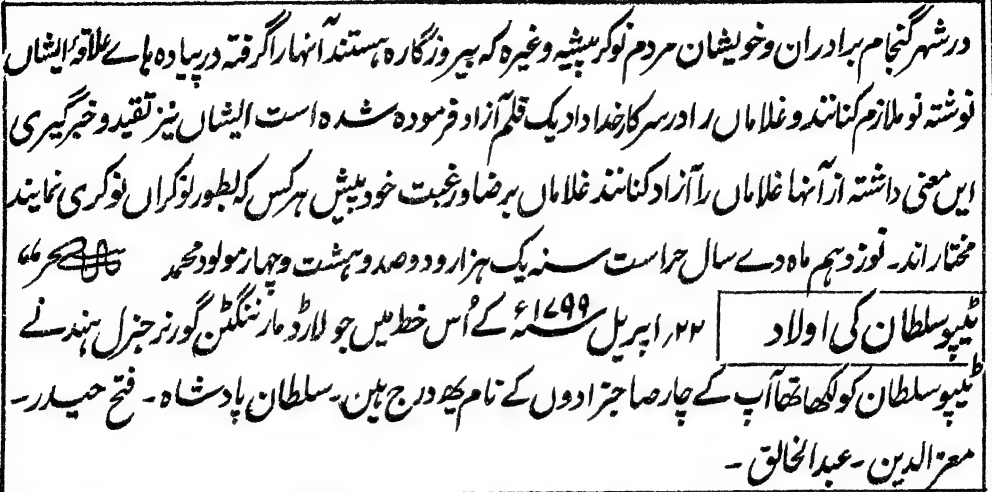 در شہر گنجام برادران و خویشان مردم نوکر پیشہ وغیرہ کہ بیروزگارہ ہستند آنہا را گرفتہ در پیادہ ہاے علاقۂ ایشاں
نوشتہ نو ملازم کنانند و غلاماں را در سرکار خداداد یک قلم آزاد فرمودہ شدہ است ایشاں نیز تقید و خبرگیری
ایں معنی داشتہ از آنہا غلاماں را آزاد کنانند غلاماں برضا و رغبت خود پیش ہر کس کہ بطور نوکراں نوکری نمایند
مختار اند۔ نوزدہم ماہ دے سال حراست سنہ یک ہزار و دو صد و ہشت و چہار مولود محمد
ٹیپو سلطان کی اولاد
۲۲؍ اپریل سنہ ۱۷۹۹ء کے اُس خط میں جو لارڈ مارننگٹن گورنر جنرل ہند نے
ٹیپو سلطان کو لکھا تھا آپ کے چار صاحبزادوں کے نام یہ درج ہیں۔ سلطان پادشاہ۔ فتح حیدر۔
معز الدین۔ عبد الخالق۔